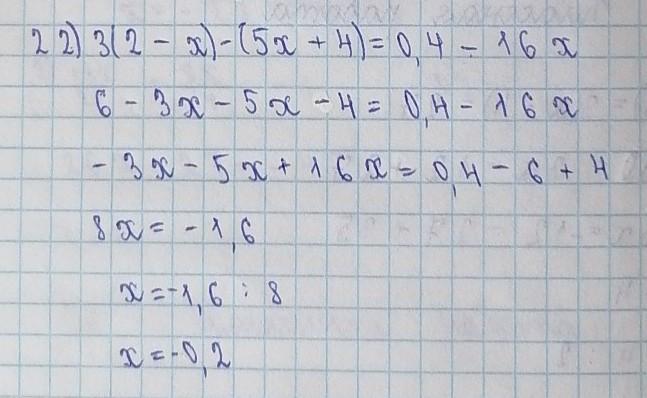 22) 3(2 - x) - (5x + 4) = 0,4 - 16x
6 - 3x - 5x - 4 = 0,4 - 16x
- 3x - 5x + 16x = 0,4 - 6 + 4
8x = - 1,6
x = -1,6 : 8
x = -0,2